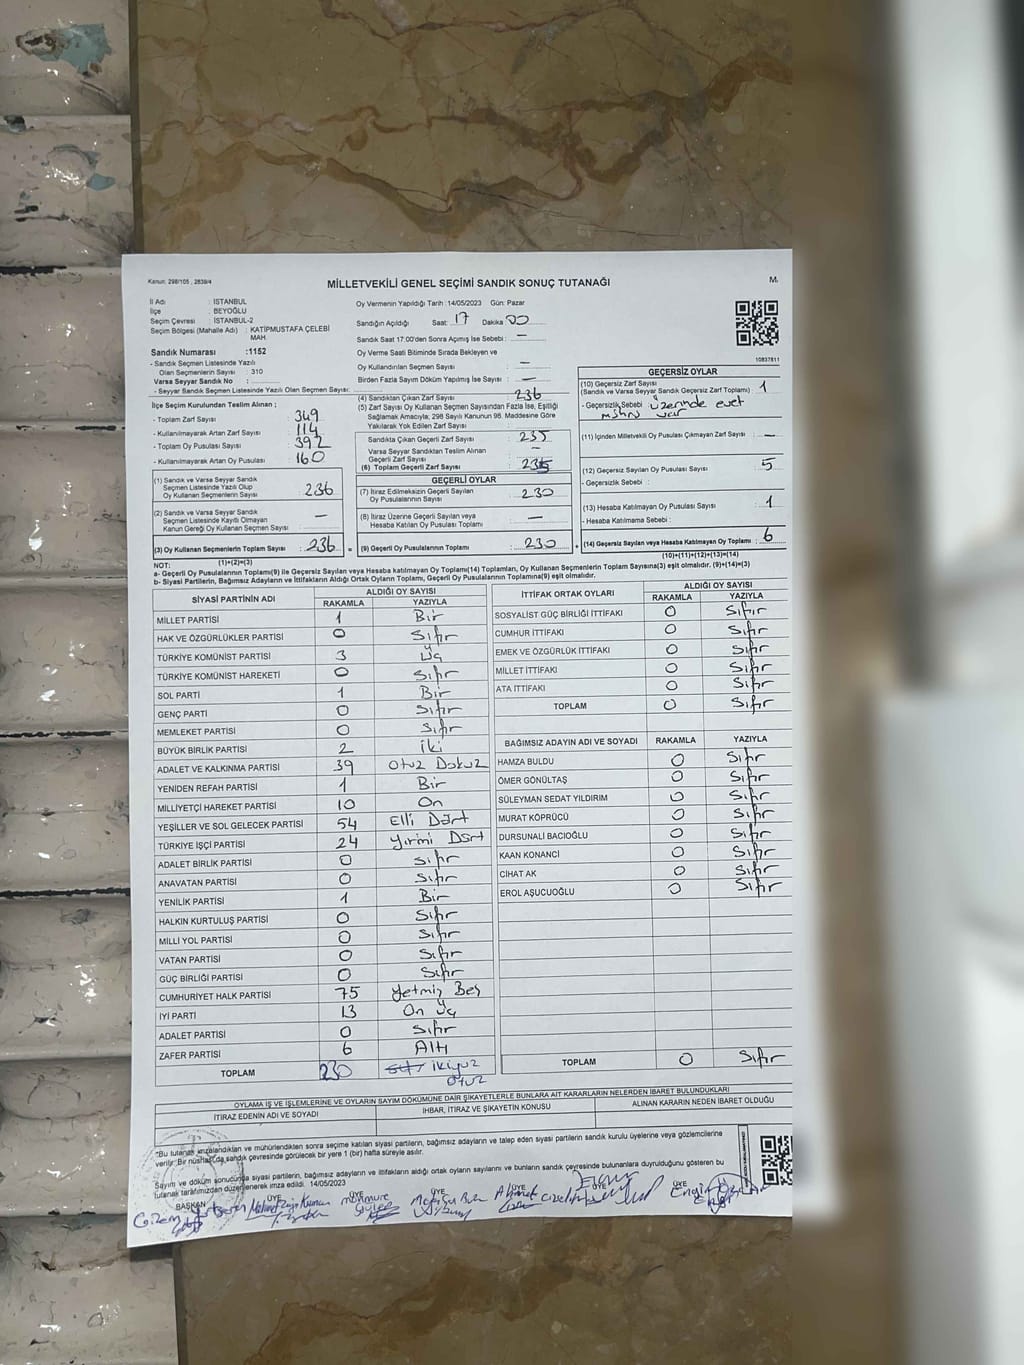 Kanun: 298/105 , 2839/4
MİLLETVEKİLİ GENEL SEÇİMİ SANDIK SONUÇ TUTANAĞI
M.
İl Adı : İSTANBUL
İlçe : BEYOĞLU
Seçim Çevresi : İSTANBUL-2
Seçim Bölgesi (Mahalle Adı) : KATİPMUSTAFA ÇELEBİ MAH
Sandık Numarası :1152
- Sandık Seçmen Listesinde Yazılı
Olan Seçmenlerin Sayısı : 310
Varsa Seyyar Sandık No :
- Seyyar Sandık Listesinde Yazılı Olan Seçmen Sayısı:
Oy Vermenin Yapıldığı Tarih : 14/05/2023 Gün: Pazar
Sandığın Açıldığı Saat: 17 Dakika 00
Sandık Saat 17:00'den Sonra Açımış İse Sebebi : —
Oy Verme Saati Bitiminde Sırada Bekleyen ve
Oy Kullandırılan Seçmen Sayısı —
Birden Fazla Sayım Döküm Yapılmış İse Sayısı : —
10837811
İlçe Seçim Kurulundan Teslim Alınan ;
- Toplam Zarf Sayısı 349
- Kullanılmayarak Artan Zarf Sayısı 114
- Toplam Oy Pusulası Sayısı 392
- Kullanılmayarak Artan Oy Pusulası 160
(1) Sandık ve Varsa Seyyar Sandık
Seçmen Listesinde Yazılı Olup
Oy Kullanan Seçmenlerin Sayısı : 236
(2) Sandık ve Varsa Seyyar Sandık
Seçmen Listesinde Kayıtlı Olmayan
Kanun Gereği Oy Kullanan Seçmen Sayısı —
(3) Oy Kullanan Seçmenlerin Toplam Sayısı : 236
(1)+(2)=(3)
(4) Sandıktan Çıkan Zarf Sayısı 236
(5) Zarf Sayısı Oy Kullanan Seçmen Sayısından Fazla İse, Eşitliği
Sağlamak Amacıyla; 298 Sayılı Kanunun 98. Maddesine Göre
Yakılarak Yok Edilen Zarf Sayısı :
Sandıkta Çıkan Geçerli Zarf Sayısı : 235
Varsa Seyyar Sandıktan Teslim Alınan
Geçerli Zarf Sayısı —
(6) Toplam Geçerli Zarf Sayısı : 235
GEÇERLİ OYLAR
(7) İtiraz Edilmeksizin Geçerli Sayılan
Oy Pusulalarının Sayısı : 230
(8) İtiraz Üzerine Geçerli Sayılan veya
Hesaba Katılan Oy Pusulası Toplamı : —
= (9) Geçerli Oy Pusulalarının Toplamı : 230
GEÇERSİZ OYLAR
(10) Geçersiz Zarf Sayısı
(Sandık ve Varsa Seyyar Sandık Geçersiz Zarf Toplamı) : 1
- Geçersizlik Sebebi : üzerinde evet
mührü var
(11) İçinden Milletvekili Oy Pusulası Çıkmayan Zarf Sayısı : —
(12) Geçersiz Sayılan Oy Pusulası Sayısı : 5
- Geçersizlik Sebebi :
(13) Hesaba Katılmayan Oy Pusulası Sayısı : 1
- Hesaba Katılmama Sebebi :
+ (14) Geçersiz Sayılan veya Hesaba Katılmayan Oy Toplamı : 6
(10)+(11)+(12)+(13)=(14)
NOT:
a- Geçerli Oy Pusulalarının Toplamı(9) ile Geçersiz Sayılan veya Hesaba katılmayan Oy Toplamı(14) Toplamları, Oy Kullanan Seçmenlerin Toplam Sayısına(3) eşit olmalıdır. (9)+(14)=(3)
b- Siyasi Partilerin, Bağımsız Adayların ve İttifakların Aldığı Ortak Oyların Toplamı, Geçerli Oy Pusulalarının Toplamına(9) eşit olmalıdır.
SİYASİ PARTİNİN ADI ALDIĞI OY SAYISI
RAKAMLA YAZIYLA
MİLLET PARTİSİ 1 Bir
HAK VE ÖZGÜRLÜKLER PARTİSİ 0 Sıfır
TÜRKİYE KOMÜNİST PARTİSİ 3 Üç
TÜRKİYE KOMÜNİST HAREKETİ 0 Sıfır
SOL PARTİ 1 Bir
GENÇ PARTİ 0 Sıfır
MEMLEKET PARTİSİ 0 Sıfır
BÜYÜK BİRLİK PARTİSİ 2 İki
ADALET VE KALKINMA PARTİSİ 39 Otuz Dokuz
YENİDEN REFAH PARTİSİ 1 Bir
MİLLİYETÇİ HAREKET PARTİSİ 10 On
YEŞİLLER VE SOL GELECEK PARTİSİ 54 Elli Dört
TÜRKİYE İŞÇİ PARTİSİ 24 Yirmi Dört
ADALET BİRLİK PARTİSİ 0 Sıfır
ANAVATAN PARTİSİ 0 Sıfır
YENİLİK PARTİSİ 1 Bir
HALKIN KURTULUŞ PARTİSİ 0 Sıfır
MİLLİ YOL PARTİSİ 0 Sıfır
VATAN PARTİSİ 0 Sıfır
GÜÇ BİRLİĞİ PARTİSİ 0 Sıfır
CUMHURİYET HALK PARTİSİ 75 Yetmiş Beş
İYİ PARTİ 13 On Üç
ADALET PARTİSİ 0 Sıfır
ZAFER PARTİSİ 6 Altı
TOPLAM 230 Sıfır ikiyüz
otuz
İTTİFAK ORTAK OYLARI ALDIĞI OY SAYISI
RAKAMLA YAZIYLA
SOSYALİST GÜÇ BİRLİĞİ İTTİFAKI 0 Sıfır
CUMHUR İTTİFAKI 0 Sıfır
EMEK VE ÖZGÜRLÜK İTTİFAKI 0 Sıfır
MİLLET İTTİFAKI 0 Sıfır
ATA İTTİFAKI 0 Sıfır
TOPLAM 0 Sıfır
BAĞIMSIZ ADAYIN ADI VE SOYADI RAKAMLA YAZIYLA
HAMZA BULDU 0 Sıfır
ÖMER GÖNÜLTAŞ 0 Sıfır
SÜLEYMAN SEDAT YILDIRIM 0 Sıfır
MURAT KÖPRÜCÜ 0 Sıfır
DURSUNALİ BACIOĞLU 0 Sıfır
KAAN KONANCİ 0 Sıfır
CİHAT AK 0 Sıfır
EROL AŞUCUOĞLU 0 Sıfır
TOPLAM 0 Sıfır
OYLAMA İŞ VE İŞLEMLERİNE VE OYLARIN SAYIM DÖKÜMÜNE DAİR ŞİKAYETLERLE BUNLARA AİT KARARLARIN NELERDEN İBARET BULUNDUKLARI
İTİRAZ EDENİN ADI VE SOYADI İHBAR, İTİRAZ VE ŞİKAYETİN KONUSU ALINAN KARARIN NEDEN İBARET OLDUĞU
*Bu tutanak imzalandıktan ve mühürlendikten sonra seçime katılan siyasi partilerin, bağımsız adayların ve talep eden siyasi partilerin sandık kurulu üyelerine veya gözlemcilerine
verilir. Bir nüshası da sandık çevresinde görülecek bir yere 1 (bir) hafta süreyle asılır.
Sayım ve döküm sonucunda siyasi partilerin, bağımsız adayların ve ittifakların aldığı ortak oyların sayılarını ve bunların sandık çevresinde bulunanlara duyrulduğunu gösteren bu
tutanak tarafımızdan düzenlenerek imza edildi. 14/05/2023
BAŞKAN ÜYE ÜYE ÜYE ÜYE ÜYE
Gizem Mahmure Ahmet Engin